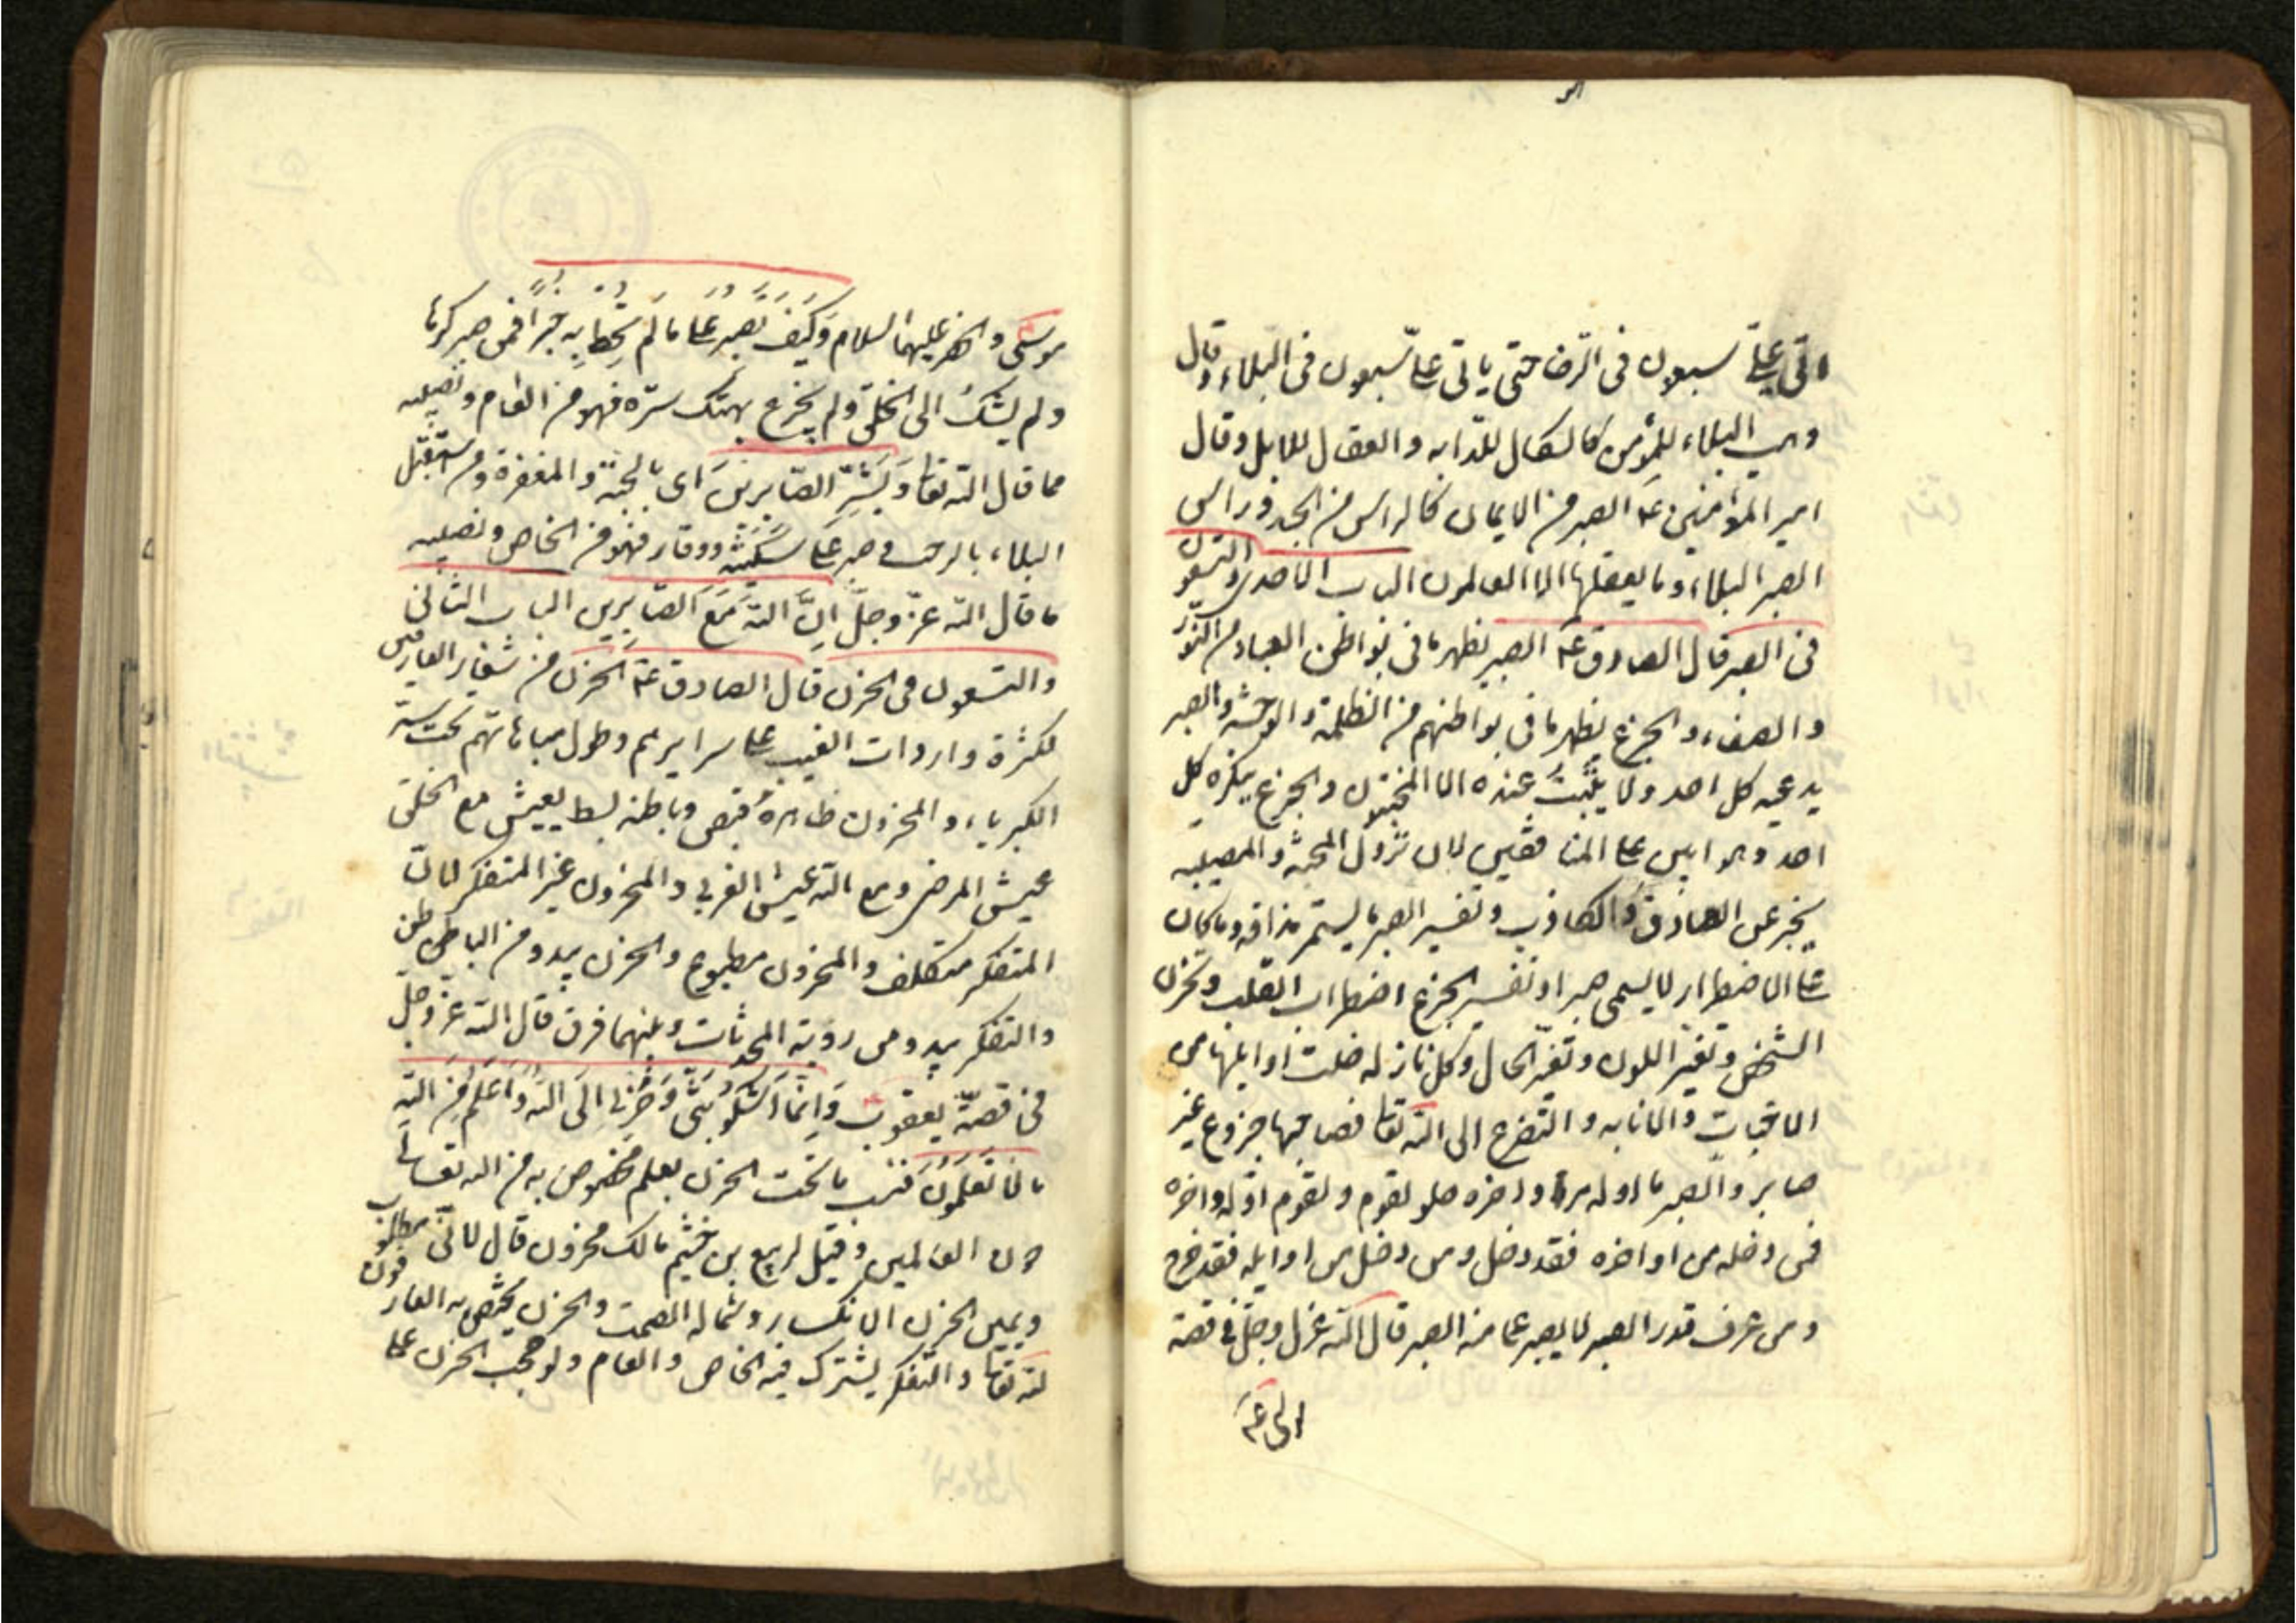 اتى علىّ سبعون فى الرخا حتى ياتى علىّ سبعون فى البلاء وقال
وهب البلاء للمؤمن كالشكال للدابه والعقال للابل وقال
امير المؤمنين عه الصبر من الايمان كالراس من الجسد وراس
الصبر البلاء وما يعقلها الا العالمون الباب الاحدى والتسعون
فى الصبر قال الصادق عه الصبر يظهر ما فى بواطن العباد من النور
والصفاء والجزع يظهر ما فى بواطنهم من الظلمة والوحشة والصبر
يدعيه كل احد ولا يثبت عنده الا المخبتون والجزع ينكره كل
احد وهو ابين على المنافقين لان نزول المحنة والمصيبة
يخبر عن الصادق والكاذب وتفسير الصبر ما يستمر مذاقه وما كان
عن الاضطرار لا يسمى صبرا وتفسير الجزع اضطراب القلب وتحزن
الشخص وتغير اللون وتغير الحال وكل نازله خلت اوايلها من
الاخبات والانابه والتضرع الى الله تعا فصاحبها جزوع غير
صابر والصبر ما اوله مر واخره حلو لقوم ولقوم اوله واخره
فمن دخله من اواخره فقد دخل ومن دخل من اوايله فقد خرج
ومن عرف قدر الصبر لا يصبر عما منه الصبر قال الله عزل وجل فى قصة
موسى والخضر عليهما السلام وَكَيْفَ تَصْبِرُ عَلَى مَا لَم تُحِطْ بِهِ خُبْراً فمن صبر كرها
ولم يشك الى الخلق ولم يجزع بهتك سره فهو من العام ونصيبه
مما قال الله تعا وَبَشِّرِ الصّابرينَ اى بالجنة والمغفرة ومن استقبل
البلاء بالرحب وصبر على سكينته ووقار فهو من الخاص ونصيبه
ما قال الله عزّ وجلّ انَّ اللهَ مَعَ الصّابِرين الباب الثانى
والتسعون فى الحزن قال الصادق عه الحزن من شعار العارفين
لكثرة واردات الغيب على سرايرهم وطول مباهاتهم تحت ستر
الكبرياء والمحزون ظاهره قبض وباطنه بسط يعيش مع الخلق
عيش المرضى ومع الله عيش القربى والمحزون غير المتفكر لان
المتفكر متكلف والمحزون مطبوع والحزن يبدو من الباطن
والتفكر يبدو من روية المحدثات وبينهما فرق قال الله عزّ وجلّ
فى قصّة يعقوب وَانّما اَشكُو بَثّى وَحُزنى اِلَى اللهِ وَاَعلَمُ مِنَ اللهِ
ما لا تَعلَمُونَ فبسبب ما تحت الحزن بعلم مخصوص به من الله تعالى
دون العالمين وقيل لربيع بن خثيم مالك محزون قال لانى مطلوب
ويمين الحزن الانكسار وشماله الصمت والحزن يختص به العارفون
لله تعا والتفكر يشترك فيه الخاص والعام ولو حجب الحزن عن